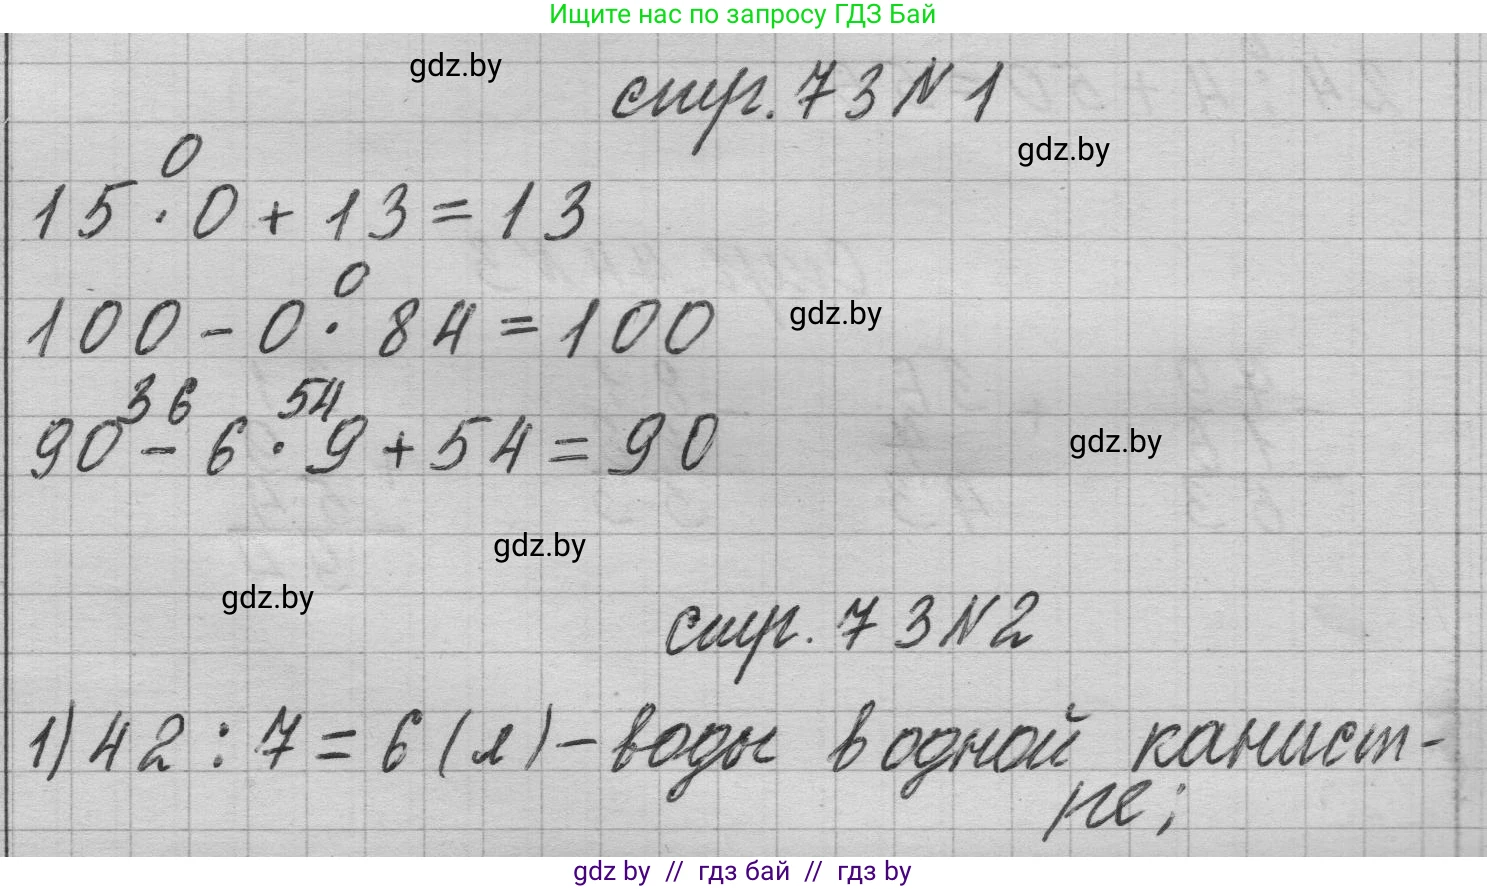 Ищите нас по запросу ГДЗ Бай
gdz.by
стр. 73 N 1
gdz.by
0
15 · 0 + 13 = 13
0
100 - 0 · 84 = 100
gdz.by
36 54
90 - 6 · 9 + 54 = 90
gdz.by
gdz.by
gdz.by
стр. 73 N 2
1) 42 : 7 = 6 (л) - воды в одной канист-
ре;
gdz by // гдз бай // гдз by